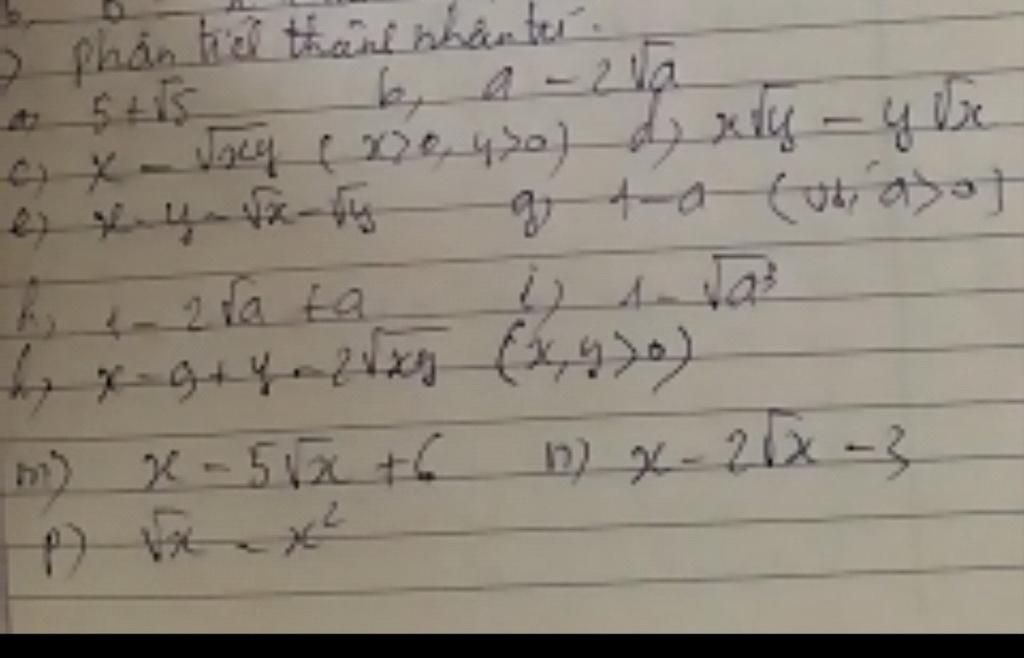 phân tích thành nhân tử.
a) 5+√5 b, a - 2√a
c) x - √xy (x>0, y>0) d) x√y - y√x
e) x - y - √x - √y g) 1 - a (với a>0)
h, 1 - 2√a + a i) 1 - √a³
k, x - 9 + y - 2√xy (x, y>0)
m) x - 5√x + 6 n) x - 2√x - 3
p) √x - x²